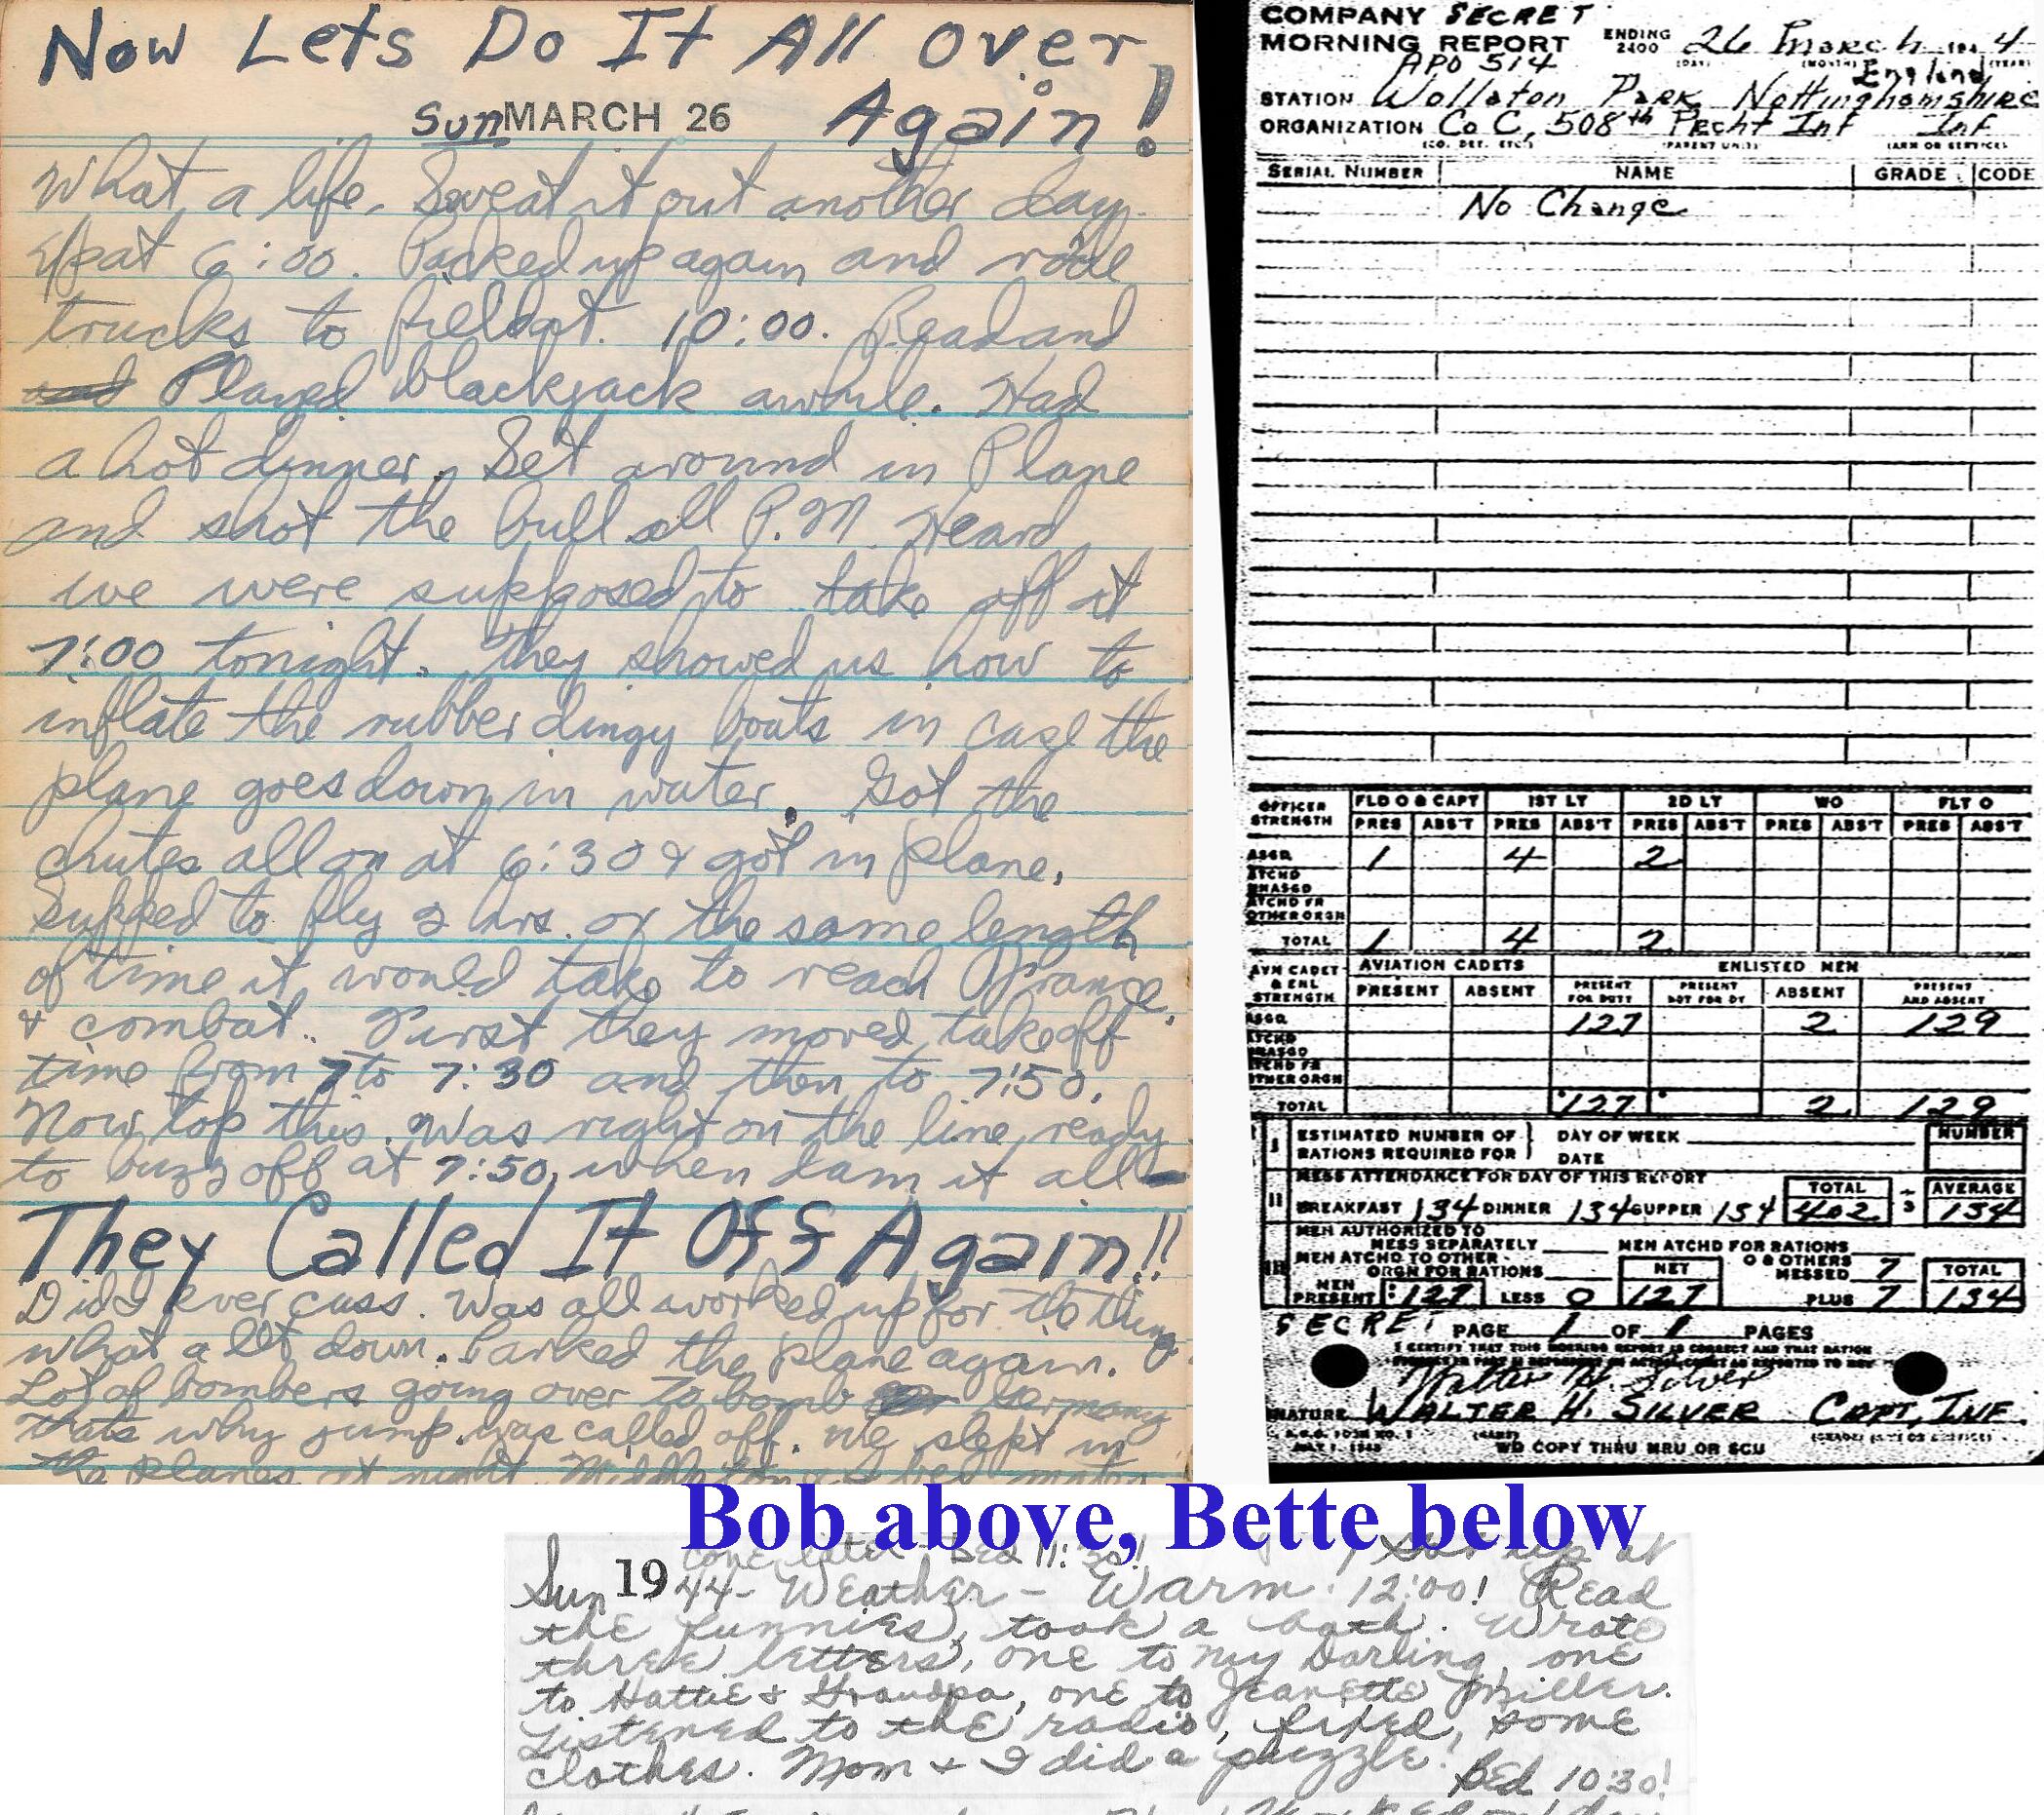 Now Lets Do It All Over
Again!
Sun MARCH 26
What a life. Sweat it out another day.
Up at 6:00. Packed up again and rode
trucks to field at. 10:00. Read and
Played blackjack awhile. Had
a hot dinner. Set around in Plane
and shot the bull all P.M. Heard
we were supposed to take off at
7:00 tonight. They showed us how to
inflate the rubber dingy boats in case the
plane goes down in water. Got the
chutes all on at 6:30 & got in plane.
Supped to fly 2 hrs. or the same length
of time it would take to reach France
& combat. First they moved takeoff
time from 7 to 7:30 and then to 7:50.
Now top this. Was right on the line ready
to buzz off at 7:50, when dam it all-
They Called It Off Again!!
Did I ever cuss. Was all worked up for the thing
what a let down. Parked the plane again.
Lot of bombers going over to bomb Germany
thats why jump was called off. We slept in
the planes at night.
COMPANY SECRET
MORNING REPORT ENDING 2400 26 March 194 4
(DAY) (MONTH) (YEAR)
APO 514 England
STATION Wollaton Park, Nottinghamshire
ORGANIZATION Co C, 508th Pecht Inf Inf
(CO. DET. ETC.) (PARENT UNIT) (ARM OR SERVICE)
SERIAL NUMBER NAME GRADE CODE
No Change
OFFICER STRENGTH FLD O & CAPT 1ST LT 2D LT WO FLT O
PRES ABS'T PRES ABS'T PRES ABS'T PRES ABS'T PRES ABS'T
ASGD 1 4 2
ATCHD UNASGD
ATCHD FR OTHER ORGN
TOTAL 1 4 2
AVN CADET & ENL STRENGTH AVIATION CADETS ENLISTED MEN
PRESENT ABSENT PRESENT FOR DUTY PRESENT NOT FOR DY ABSENT PRESENT AND ABSENT
ASGD 127 2 129
ATCHD UNASGD
ATCHD FR OTHER ORGN
TOTAL 127 2 129
I ESTIMATED NUMBER OF RATIONS REQUIRED FOR DAY OF WEEK NUMBER
DATE
MESS ATTENDANCE FOR DAY OF THIS REPORT TOTAL AVERAGE
II BREAKFAST 134 DINNER 134 SUPPER 134 402 ÷ 3 134
MEN AUTHORIZED TO
MESS SEPARATELY MEN ATCHD FOR RATIONS
III MEN ATCHD TO OTHER ORGN FOR RATIONS NET O & OTHERS MESSED 7 TOTAL
MEN PRESENT 127 LESS 0 127 PLUS 7 134
SECRET PAGE 1 OF 1 PAGES
I CERTIFY THAT THIS MORNING REPORT IS CORRECT AND THAT RATION
Walter H. Silver
SIGNATURE WALTER H. SILVER CAPT, INF.
WD COPY THRU MRU OR SCU
Bob above, Bette below
later - Bed 11:30! Got up at
Sun 1944- Weather - Warm. 12:00! Read
the funnies, took a bath. Wrote
three letters, one to my Darling, one
to Hattie & Grandpa, one to Jeanette Miller.
Listened to the radio, fixed, some
clothes. Mom & I did a puzzle!
Bed 10:30!